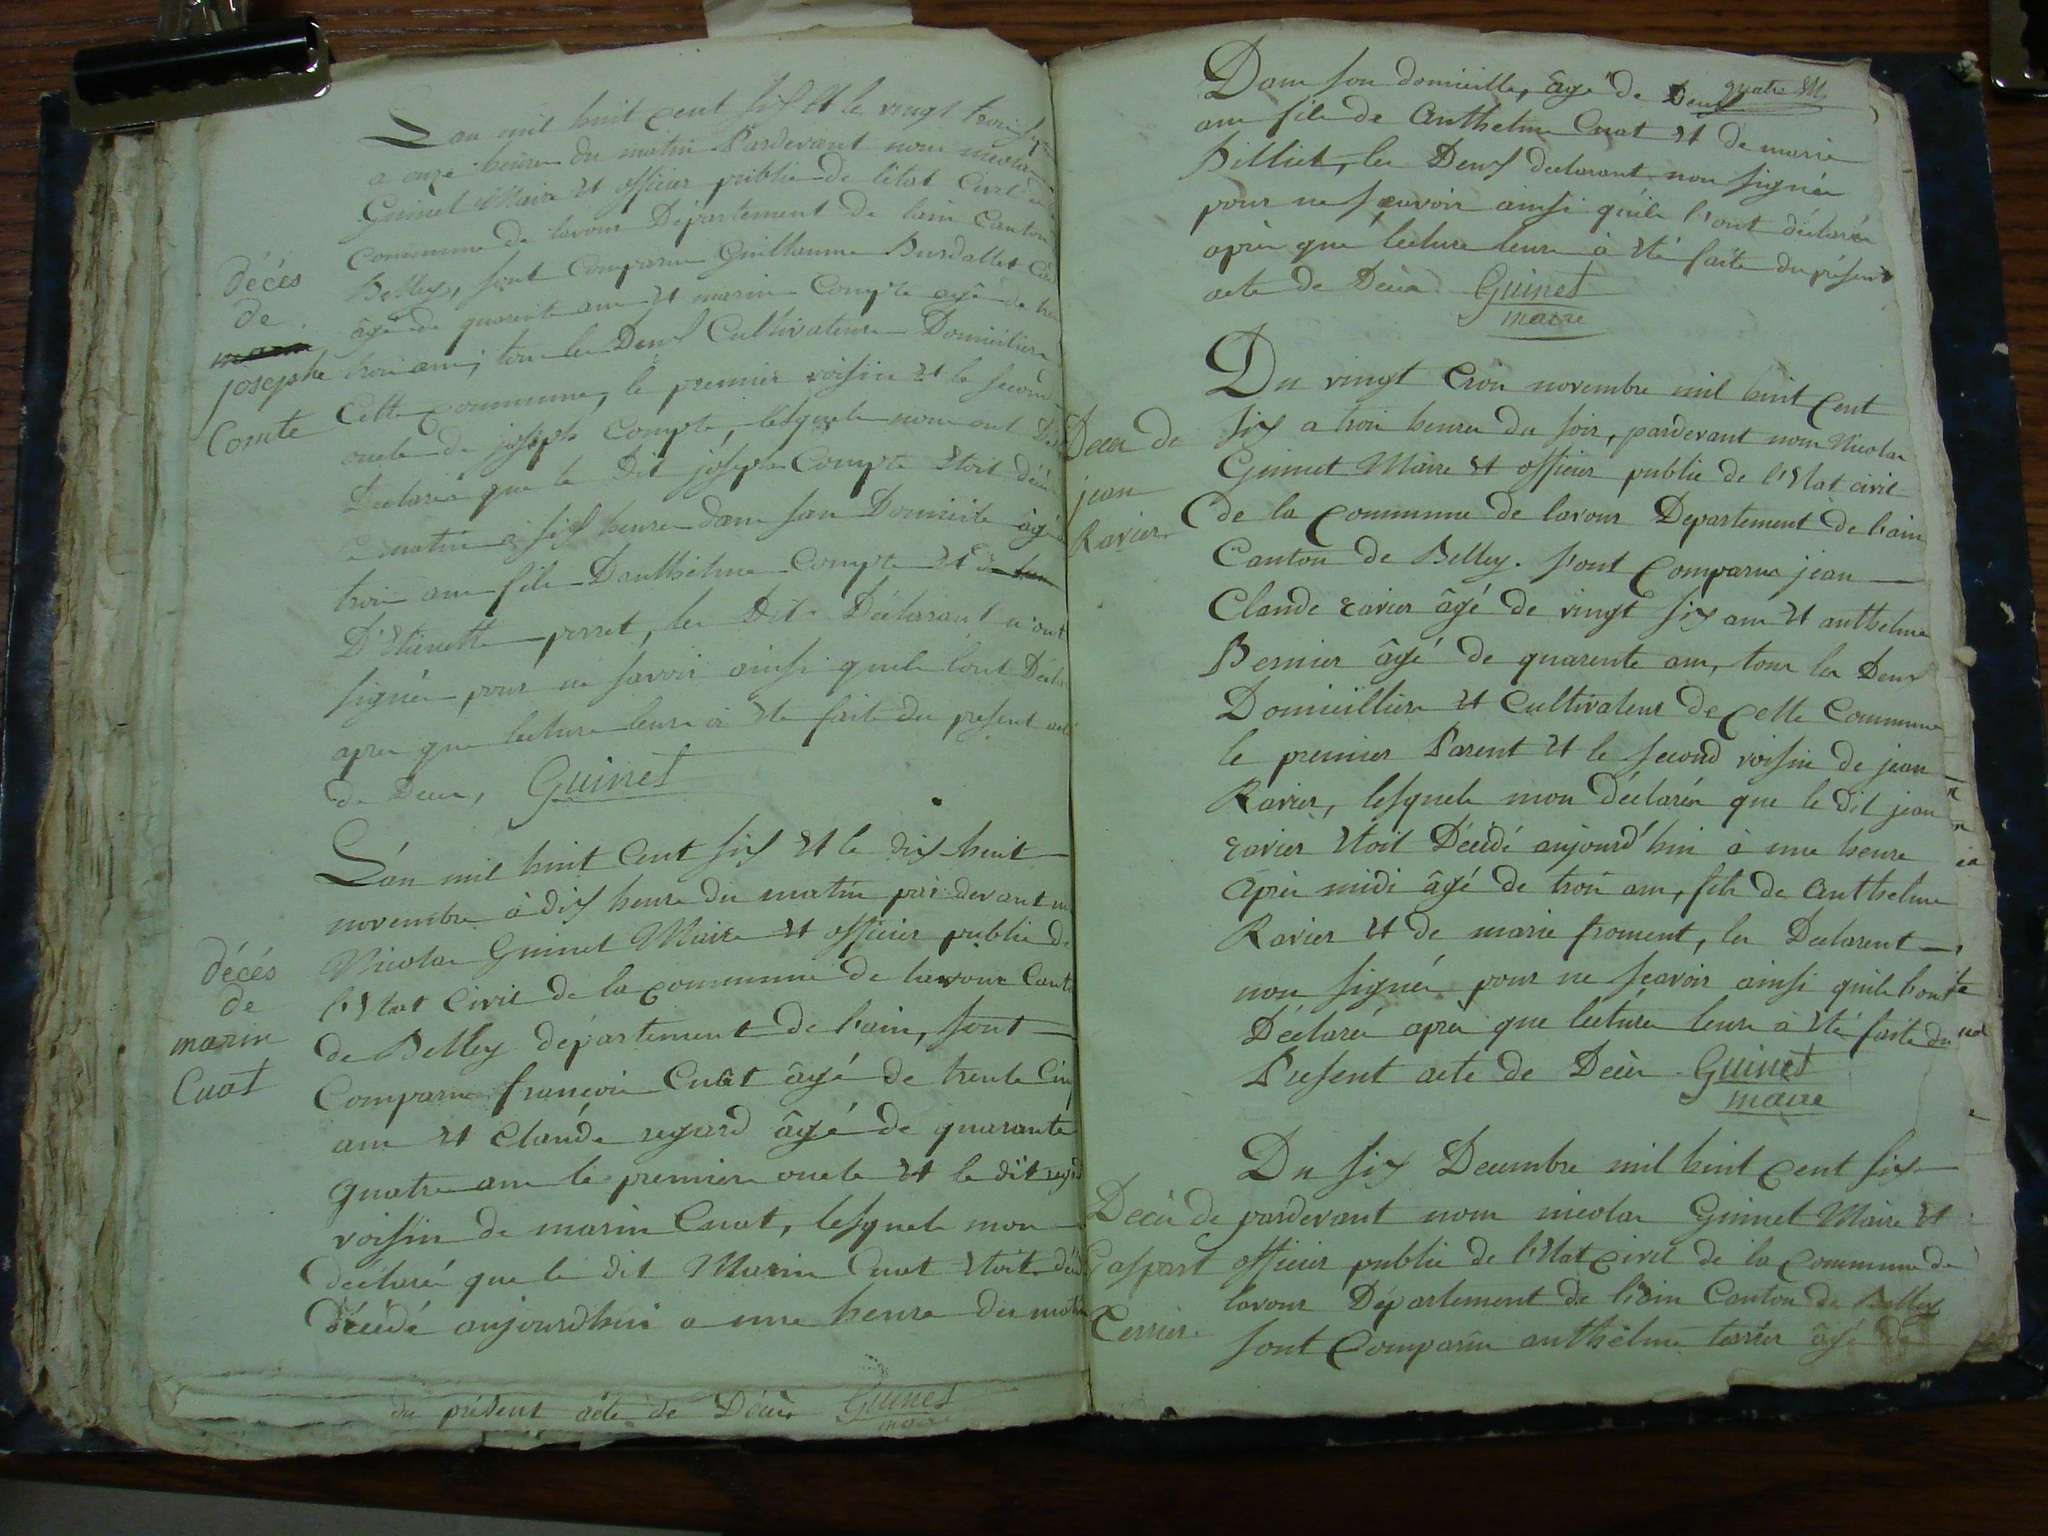 L'an mil huit cent six et le vingt trois
a onze heures du matin Pardevant nous nicolas
Guinet Maire et officier public de létat Civil de
commune de lavour Département de lain Canton
Belley, sont Comparus Guillaume Burdallet
âgé de quarente ans et marin Compte agé de
trois ans, tous les Deux Cultivateurs Domicilies
Cette commune, le premier voisin et le second
oncle de joseph Compte, lesquels nous ont
Déclarés que le Dit joseph Compte étoit décédé
ce matin à six heures dans son Domicile âgé
trois ans fils D'anthelme Compte et
D'Etienette perret, les Dits Déclarant n'ont
signés pour ne savoir ainsi quils lont Décla
apres que lecture leurs à été faite du présent acte
de Decès, Guinet
décés
de
josephe
Comte
L'an mil huit Cent six et le dix huit
novembre à dix heures du matin par devant nous
Nicolas Guinet Maire et officier public de
l'Etat Civil de la commune de lavour Canton
de Belley département de l'ain, sont
Comparus françois Cuat âgé de trente Cinq
ans et Claude regard âgé de quarante
quatre ans le premier oncle et le dit regard
voissin de marin Cuat, lesquels mon
declarés que le dit Marin Cuat étoit
Décédé aujourdhui a une heure du matin
décés
de
marin
Cuat
du présent acte de Décès Guinet
maire
Dans son domicille, âgé de quatre
ans fils de Anthelme Cuat et de marie
Billiet, les Deux declarant non signés
pour ne sçavoir ainsi quils l'ont déclarés
après que lecture leurs à été faite du présent
acte de Décès Guinet
maire
Du vingt trois novembre mil huit cent
six a trois heures du soir, pardevant nous Nicolas
Guinet Maire et officier public de l'Etat civil
de la commune de lavour Departement de l'ain
Canton de Belley. sont comparus jean
Claude ravier âgé de vingt six ans et anthelme
Bernier âgé de quarente ans, tous les Deux
Domicilliers et Cultivateurs de cette Commune
le premier Parent et le second voisin de jean
Ravier, lesquels mon déclarés que le dit jean
ravier étoit Décédé aujourd'hui à une heure
après midi âgé de trois ans, fils de Anthelme
Ravier et de marie froment, les Declarent
non signés pour ne scavoir ainsi quils l'ont
Déclarés après que lecture leurs à été faite du
Present acte de Decès Guinet
maire
Decès de
jean
Ravier
Du six Decembre mil huit cent six
pardevant nous nicolas Guinet Maire et
officier public de l'Etat civil de la commune de
lavour Département de l'ain Canton de Belley
sont comparus anthelme terrier âgé de
Decès de
Gaspart
Terrier